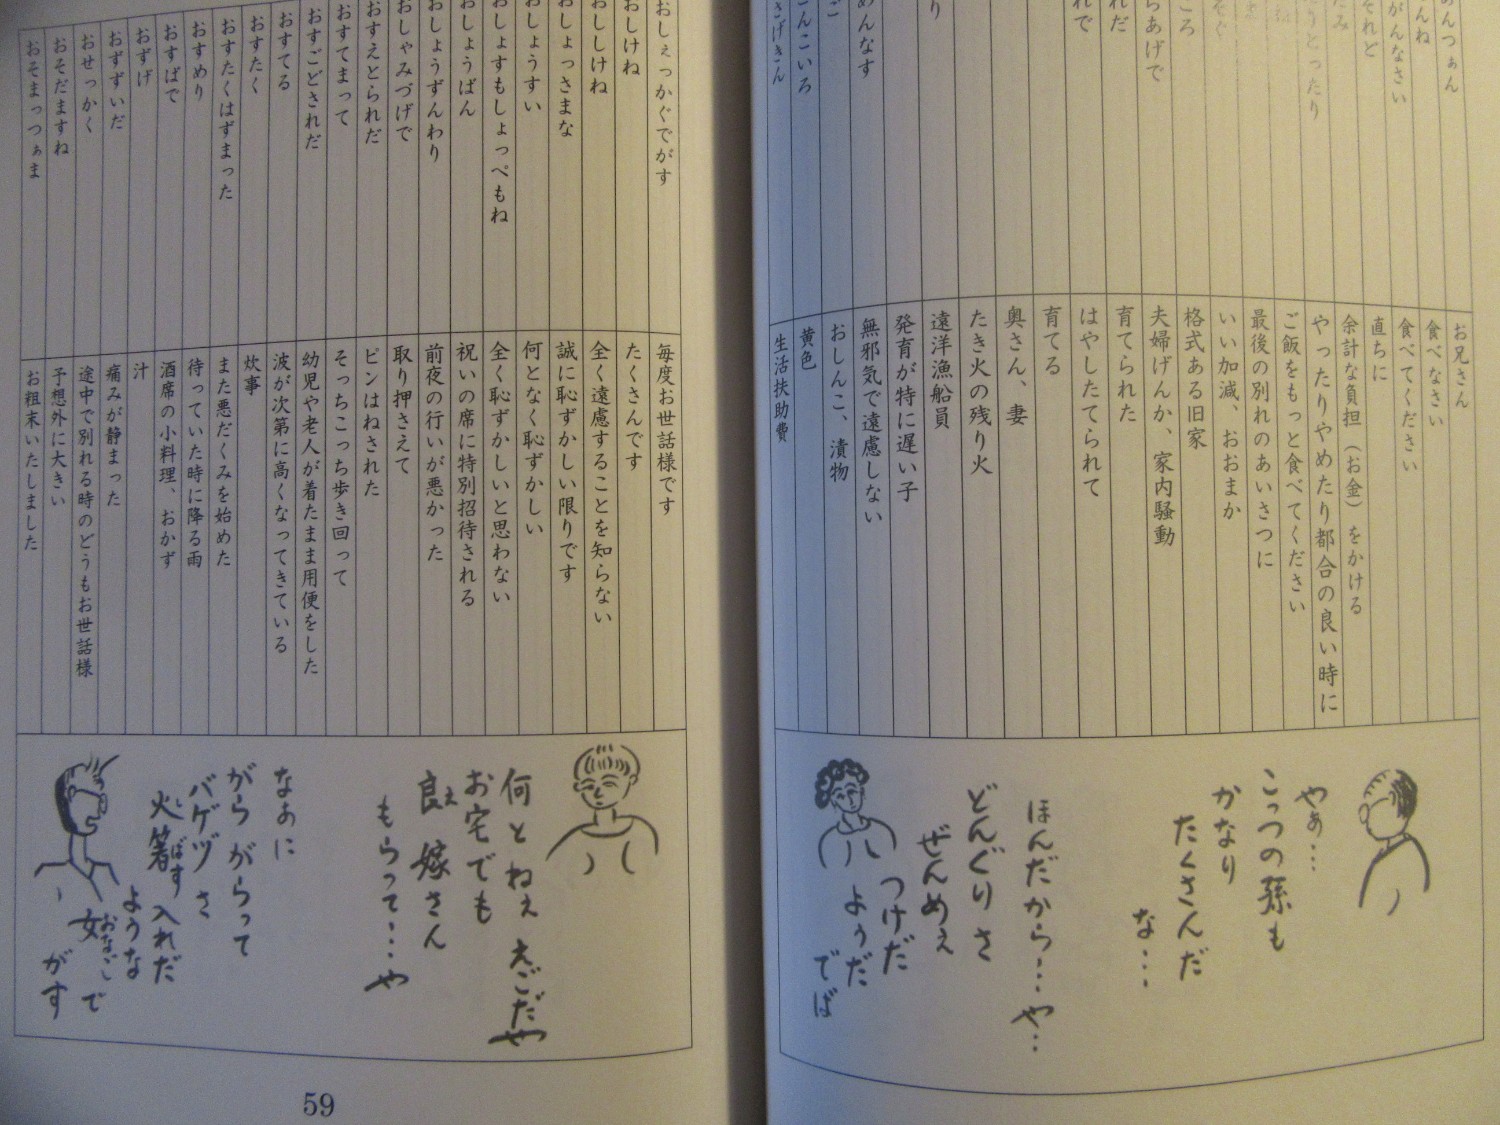 お兄さん
食べなさい
食べてください
直ちに
余計な負担（お金）をかける
やったりやめたり都合の良い時に
ご飯をもっと食べてください
最後の別れのあいさつに
いい加減、おおまか
格式ある旧家
夫婦げんか、家内騒動
育てられた
はやしたてられて
育てる
奥さん、妻
たき火の残り火
遠洋漁船員
発育が特に遅い子
無邪気で遠慮しない
おしんこ、漬物
黄色
生活扶助費
やぁ…
こっつの孫も
かなり
たくさんだ
な…
ほんだから…や…
どんぐりさ
ぜんめぇ
つけだ
ようだ
でば
おしぇっかぐでがす
おしけね
おししけね
おしょっさまな
おしょうすい
おしょすもしょっぺもね
おしょうばん
おしょうずんわり
おしゃみづげで
おすえとられだ
おすてまって
おすごどされだ
おすてる
おすたく
おすたくはずまった
おすめり
おすばで
おずげ
おずずいだ
おせっかく
おそだますね
おそまっつぁま
毎度お世話様です
たくさんです
全く遠慮することを知らない
誠に恥ずかしい限りです
何となく恥ずかしい
全く恥ずかしいと思わない
祝いの席に特別招待される
前夜の行いが悪かった
取り押さえて
ピンはねされた
そっちこっち歩き回って
幼児や老人が着たまま用便をした
波が次第に高くなってきている
炊事
また悪だくみを始めた
待っていた時に降る雨
酒席の小料理、おかず
汁
痛みが静まった
途中で別れる時のどうもお世話様
予想外に大きい
お粗末いたしました
何とねぇ えごだや
お宅でも
良ぇ嫁さん
もらって…や
なぁに
がらがらって
バゲヅさ
火箸入れだ
ような
女で
がす
59